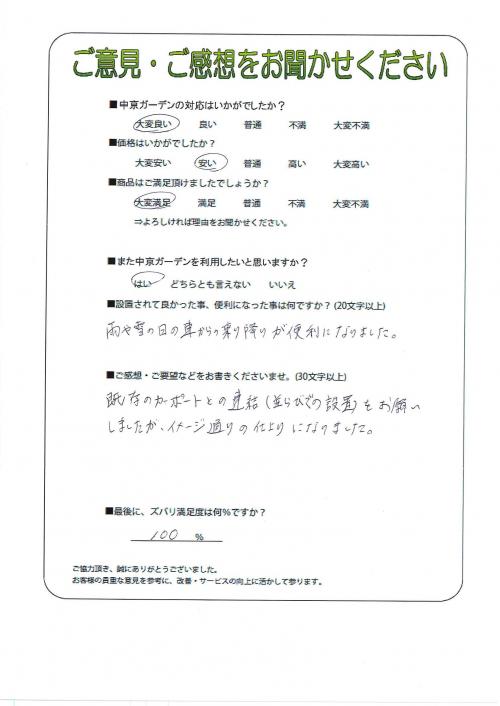 ご意見・ご感想をお聞かせください
■中京ガーデンの対応はいかがでしたか？
大変良い 良い 普通 不満 大変不満
■価格はいかがでしたか？
大変安い 安い 普通 高い 大変高い
■商品はご満足頂けましたでしょうか？
大変満足 満足 普通 不満 大変不満
⇒よろしければ理由をお聞かせください。
■また中京ガーデンを利用したいと思いますか？
はい どちらとも言えない いいえ
■設置されて良かった事、便利になった事は何ですか？(20文字以上)
雨や雪の日の車からの乗り降りが便利になりました。
■ご感想・ご要望などをお書きくださいませ。(30文字以上)
既存のカーポートとの連結（並らびでの設置）をお願い
しましたが、イメージ通りの仕上りになりました。
■最後に、ズバリ満足度は何%ですか？
100 %
ご協力頂き、誠にありがとうございました。
お客様の貴重な意見を参考に、改善・サービスの向上に活かして参ります。